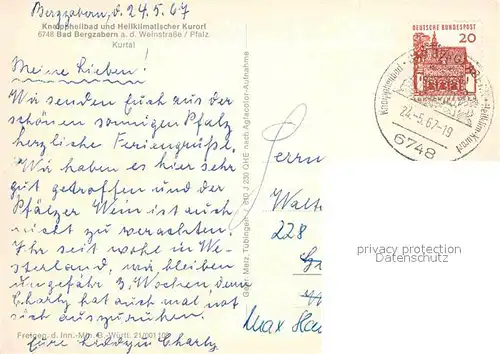 Bergzabern, d. 24.5.67
Kneippheilbad und Heilklimatischer Kurort
6748 Bad Bergzabern a. d. Weinstraße / Pfalz
Kurtal
Meine Lieben!
Wir senden Euch aus der
schönen sonnigen Pfalz
herzliche Feriengrüße.
Wir haben es hier sehr
gut getroffen und der
Pfälzer Wein ist auch
nicht zu verachten!
Ihr seit wohl in We-
sterland, wir bleiben
ungefähr 3 Wochen, denn
Charly hat auch mal nöt
sich auszuruhen.
Eure Charly
Freigeg. d. Inn.-Min. B.-Württ. 21/001 10
Gebr. Metz, Tübingen 610 J 230 OHE nach Agfacolor-Aufnahme
DEUTSCHE BUNDESPOST
20
Kneippheilbad
Heilklim. Kurort
24.-5.67-19
6748
Herrn
Walt
228
Max Ha
privacy protection
Datenschutz